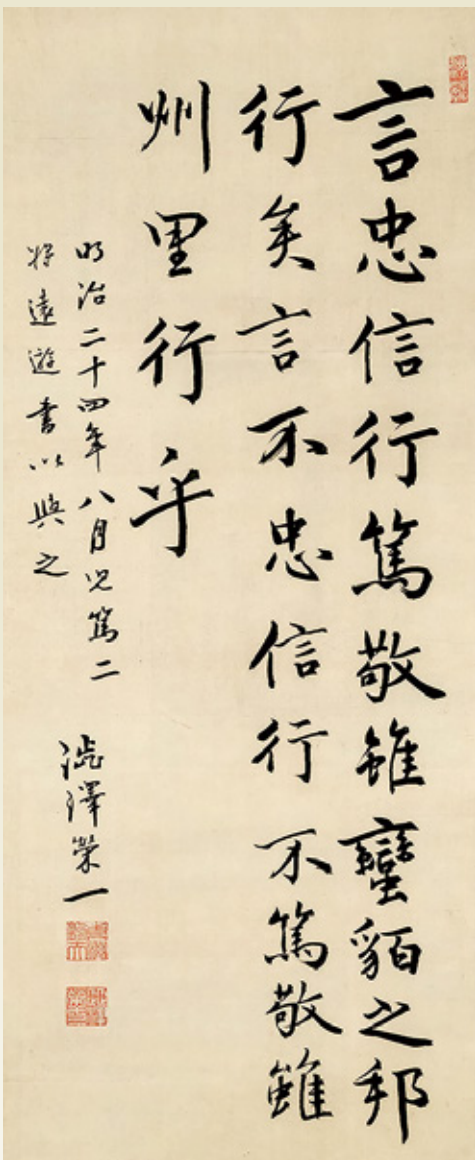 言忠信行篤敬雖蠻貊之邦
行矣言不忠信行不篤敬雖
州里行乎
明治二十四年八月児篤二
将遠遊書以與之
澁澤榮一